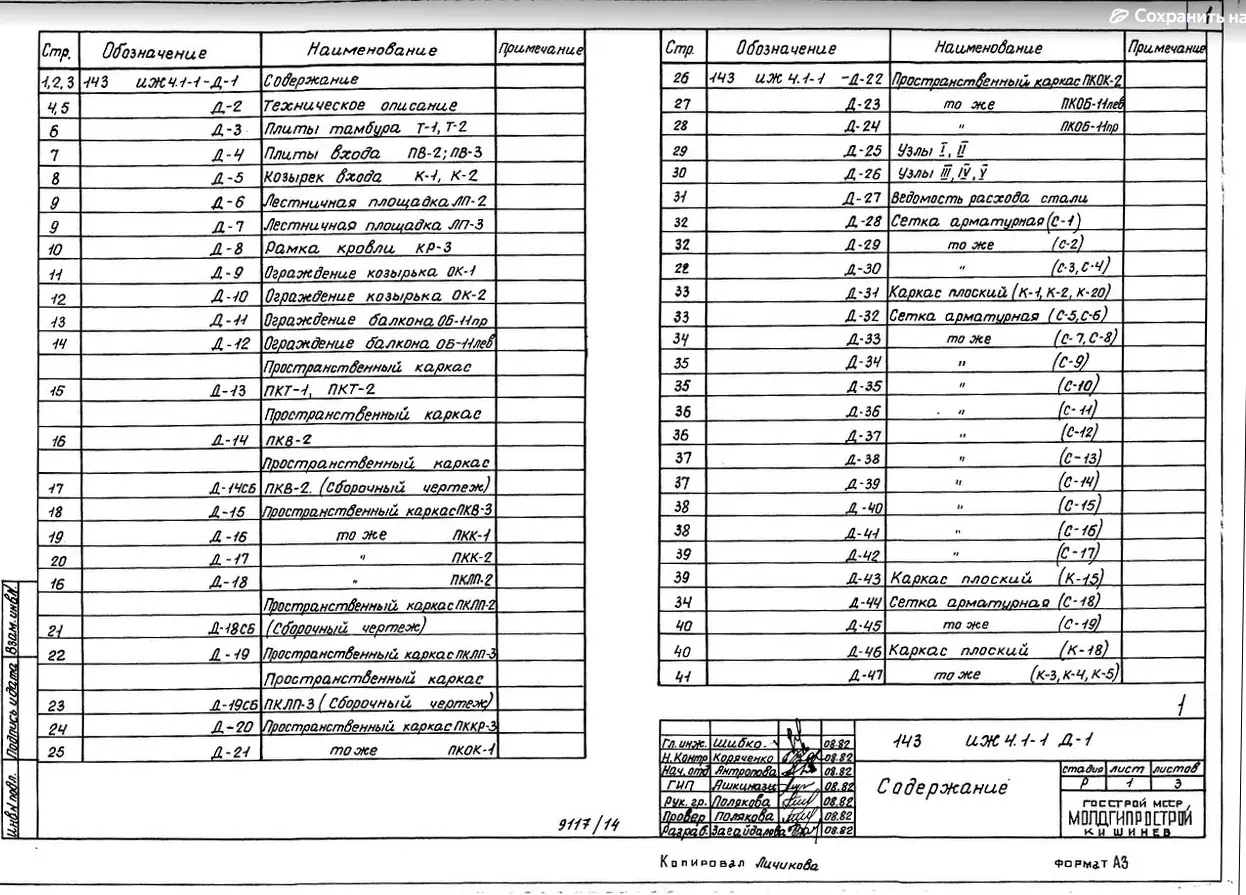 Сохранить на
1
Стр. Обозначение Наименование Примечание
1,2,3 143 ИЖ 4.1-1-Д-1 Содержание
4,5 Д-2 Техническое описание
6 Д-3 Плиты тамбура Т-1, Т-2
7 Д-4 Плиты входа ПВ-2; ПВ-3
8 Д-5 Козырек входа К-1, К-2
9 Д-6 Лестничная площадка ЛП-2
9 Д-7 Лестничная площадка ЛП-3
10 Д-8 Рамка кровли КР-3
11 Д-9 Ограждение козырька ОК-1
12 Д-10 Ограждение козырька ОК-2
13 Д-11 Ограждение балкона ОБ-11пр
14 Д-12 Ограждение балкона ОБ-11лев
Пространственный каркас
15 Д-13 ПКТ-1, ПКТ-2
Пространственный каркас
16 Д-14 ПКВ-2
Пространственный каркас
17 Д-14СБ ПКВ-2. (Сборочный чертеж)
18 Д-15 Пространственный каркас ПКВ-3
19 Д-16 то же ПКК-1
20 Д-17 " ПКК-2
16 Д-18 " ПКЛП-2
Пространственный каркас ПКЛП-2
21 Д-18СБ (Сборочный чертеж)
22 Д-19 Пространственный каркас ПКЛП-3
Пространственный каркас
23 Д-19СБ ПКЛП-3 (Сборочный чертеж)
24 Д-20 Пространственный каркас ПККР-3
25 Д-21 то же ПКОК-1
Стр. Обозначение Наименование Примечание
26 143 ИЖ 4.1-1 -Д-22 Пространственный каркас ПКОК-2
27 Д-23 то же ПКОБ-11лев
28 Д-24 " ПКОБ-11пр
29 Д-25 Узлы I, II
30 Д-26 Узлы III, IV, V
31 Д-27 Ведомость расхода стали
32 Д-28 Сетка арматурная (С-1)
32 Д-29 то же (С-2)
22 Д-30 " (С-3, С-4)
33 Д-31 Каркас плоский (К-1, К-2, К-20)
33 Д-32 Сетка арматурная (С-5, С-6)
34 Д-33 то же (С-7, С-8)
35 Д-34 " (С-9)
35 Д-35 " (С-10)
36 Д-36 " (С-11)
36 Д-37 " (С-12)
37 Д-38 " (С-13)
37 Д-39 " (С-14)
38 Д-40 " (С-15)
38 Д-41 " (С-16)
39 Д-42 " (С-17)
39 Д-43 Каркас плоский (К-15)
34 Д-44 Сетка арматурная (С-18)
40 Д-45 то же (С-19)
40 Д-46 Каркас плоский (К-18)
41 Д-47 то же (К-3, К-4, К-5)
1
Гл. инж. Шибко. 08.82
Н. Контр Коряченко 08.82
Нач. отд Антропова 08.82
ГИП Яшкинази 08.82
Рук. гр. Полякова 08.82
Провер Полякова 08.82
Разраб. Загайдалова 08.82
143 ИЖ 4.1-1 Д-1
Содержание
стадия лист листов
Р 1 3
ГОССТРОЙ МССР,
МОЛДГИПРОСТРОЙ
КИШИНЕВ
9117/14
Копировал Личикова
ФОРМАТ А3
Взам. инв.
Подпись и дата
Инв N подл.